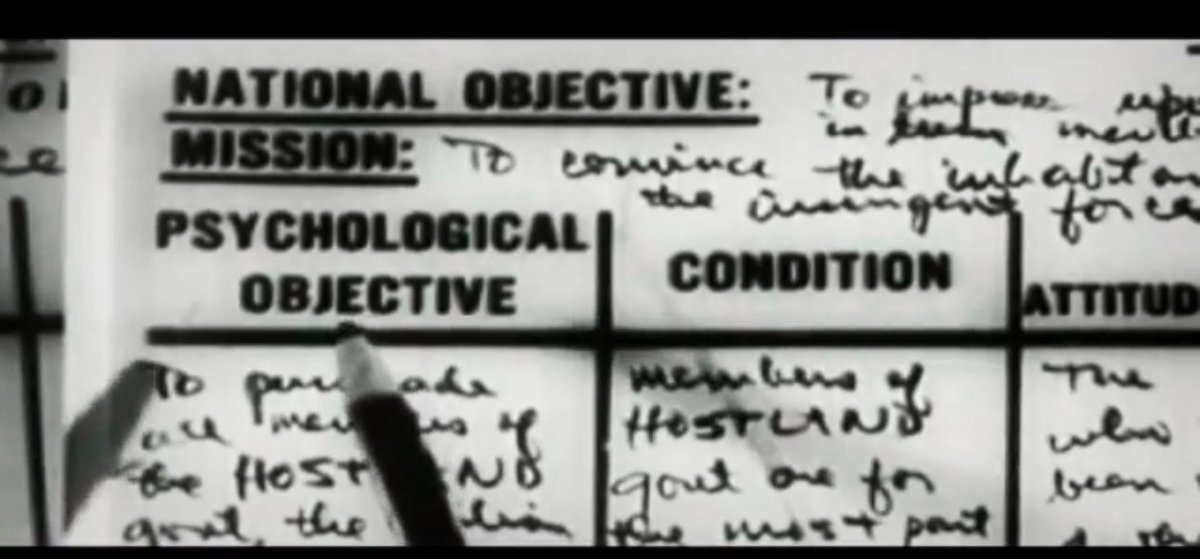 NATIONAL OBJECTIVE: To improve
in
MISSION: To convince the inhabitan
the insurgent forces
PSYCHOLOGICAL
OBJECTIVE
CONDITION
ATTITUD
To persuade
all members of
the HOSTLAND
govt, the
members of
HOSTLAND
govt are for
the most part
The
who
been